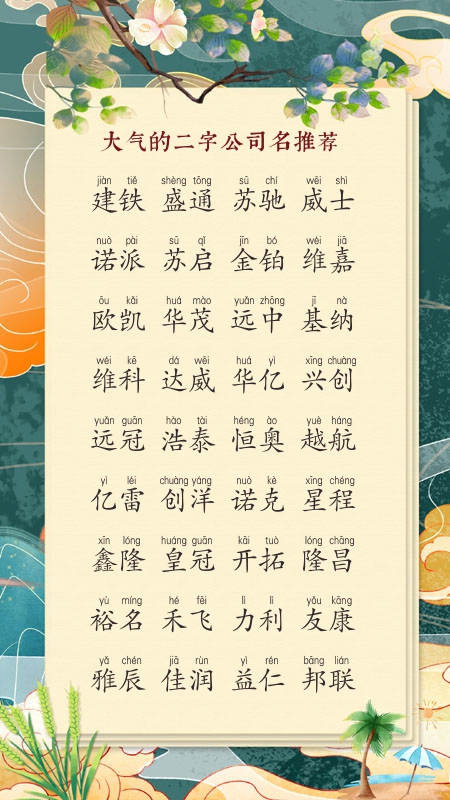 大气的二字公司名推荐
jiàn tiě shèng tōng sū chí wēi shì
建铁 盛通 苏驰 威士
nuò pài sū qǐ jīn bó wéi jiā
诺派 苏启 金铂 维嘉
ōu kǎi huá mào yuǎn zhōng jī nà
欧凯 华茂 远中 基纳
wéi kē dá wēi huá yì xīng chuàng
维科 达威 华亿 兴创
yuǎn guān hào tài héng ào yuè háng
远冠 浩泰 恒奥 越航
yì léi chuàng yáng nuò kè xīng chéng
亿雷 创洋 诺克 星程
xīn lóng huáng guān kāi tuò lóng chāng
鑫隆 皇冠 开拓 隆昌
yù míng hé fēi lì lì yǒu kāng
裕名 禾飞 力利 友康
yǎ chén jiā rùn yì rén bāng lián
雅辰 佳润 益仁 邦联